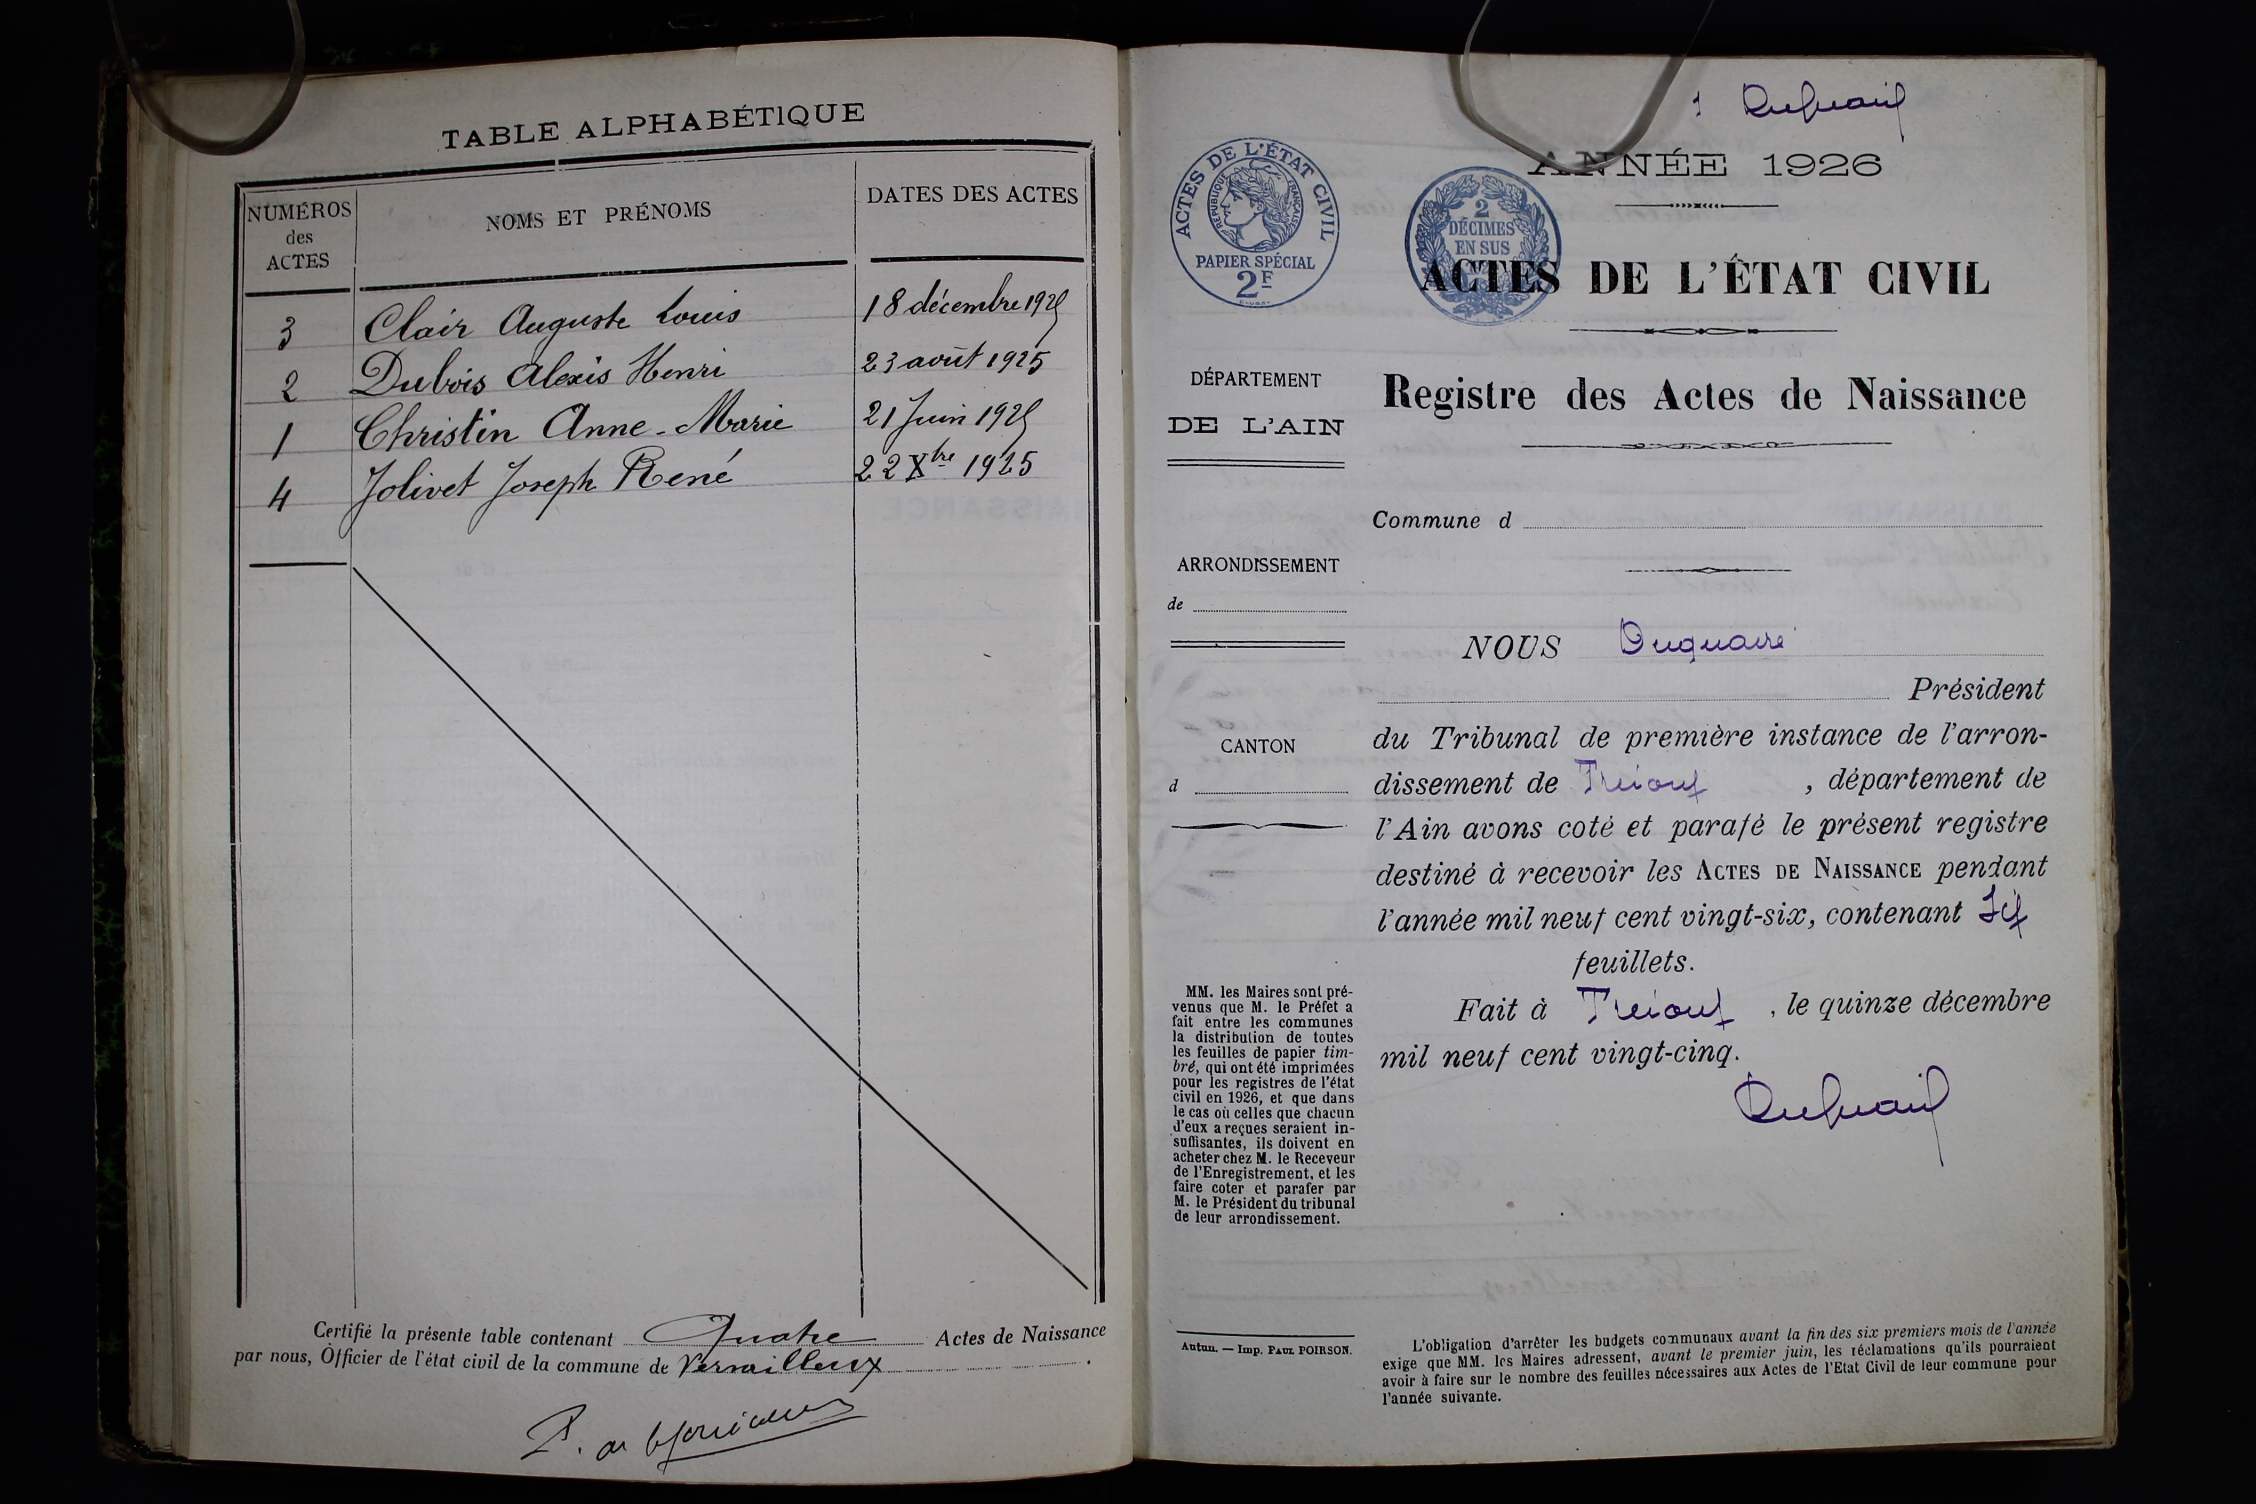 TABLE ALPHABÉTIQUE
NUMÉROS
des
ACTES
NOMS ET PRÉNOMS
DATES DES ACTES
3 Clair Auguste Louis 18 décembre 1925
2 Dubois Alexis Henri 23 août 1925
1 Christin Anne-Marie 21 Juin 1925
4 Jolivet Joseph René 22 Xbre 1925
Certifié la présente table contenant Quatre Actes de Naissance
par nous, Officier de l'état civil de la commune de Versailleux
1
ANNÉE 1926
ACTES DE L'ÉTAT CIVIL
RÉPUBLIQUE FRANÇAISE
PAPIER SPÉCIAL
2F
2
DÉCIMES
EN SUS
ACTES DE L'ÉTAT CIVIL
DÉPARTEMENT
DE L'AIN
Registre des Actes de Naissance
Commune d
ARRONDISSEMENT
de
CANTON
d
NOUS
Président
du Tribunal de première instance de l'arron-
dissement de Trévoux, département de
l'Ain avons coté et parafé le présent registre
destiné à recevoir les ACTES DE NAISSANCE pendant
l'année mil neuf cent vingt-six, contenant
feuillets.
Fait à Trévoux, le quinze décembre
mil neuf cent vingt-cinq.
MM. les Maires sont pré-
venus que M. le Préfet a
fait entre les communes
la distribution de toutes
les feuilles de papier tim-
bré, qui ont été imprimées
pour les registres de l'état
civil en 1926, et que dans
le cas où celles que chacun
d'eux a reçues seraient in-
suffisantes, ils doivent en
acheter chez M. le Receveur
de l'Enregistrement, et les
faire coter et parafer par
M. le Président du tribunal
de leur arrondissement.
Autun. — Imp. PAUL POIRSON.
L'obligation d'arrêter les budgets communaux avant la fin des six premiers mois de l'année
exige que MM. les Maires adressent, avant le premier juin, les réclamations qu'ils pourraient
avoir à faire sur le nombre des feuilles nécessaires aux Actes de l'Etat Civil de leur commune pour
l'année suivante.